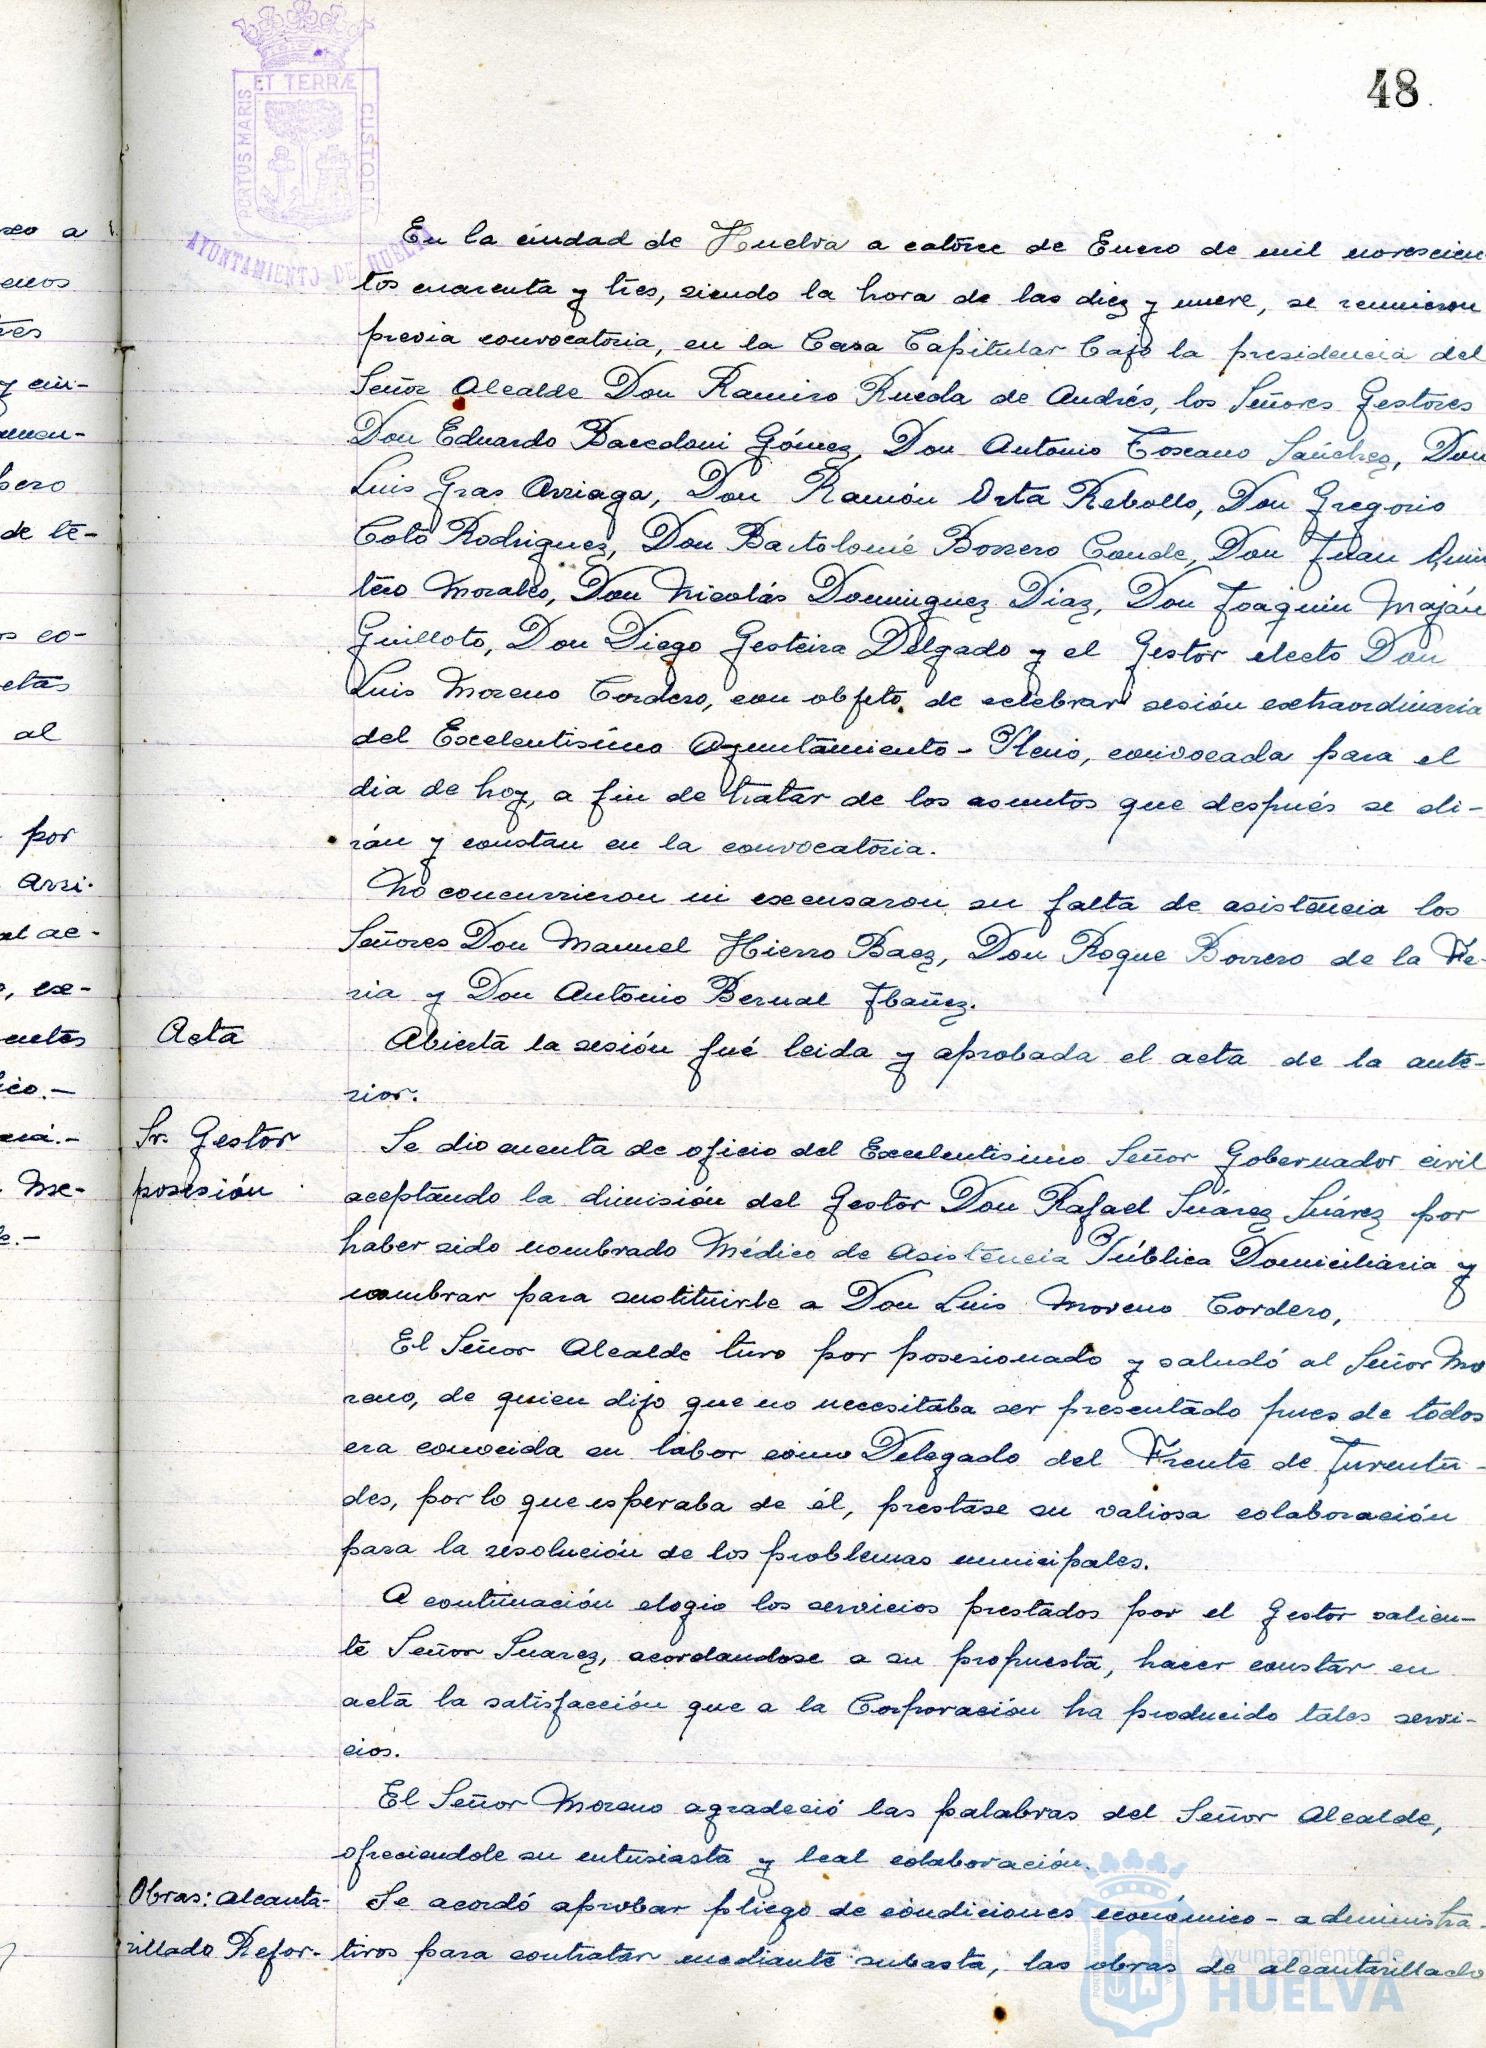 48
PORTUS MARIS ET TERRÆ CUSTODI
AYUNTAMIENTO DE HUELVA
En la ciudad de Huelva a catorce de Enero de mil novescien-
tos cuarenta y tres, siendo la hora de las diez y nueve, se reunieron
previa convocatoria, en la Casa Capitular bajo la presidencia del
Señor Alcalde Don Ramiro Rueda de Andrés, los Señores Gestores
Don Eduardo Bacedoni Gómez, Don Antonio Toscano Sánchez, Don
Luis Gras Arriaga, Don Ramón Orta Rebollo, Don Gregorio
Coto Rodriguez, Don Bartolomé Borrero Conde, Don Juan Quin
tero Morales, Don Nicolás Dominguez Diaz, Don Joaquin Maján
Guilloto, Don Diego Gesteira Delgado y el Gestor electo Don
Luis Moreno Cordero, con objeto de celebrar sesión extraordinaria
del Excelentisimo Ayuntamiento-Pleno, convocada para el
dia de hoy, a fin de tratar de los asuntos que después se di-
rán y constan en la convocatoria.
No concurrieron ni excusaron su falta de asistencia los
Señores Don Manuel Hierro Baez, Don Roque Borrero de la Fe-
ria y Don Antonio Bernal Ibañez.
Acta
Abierta la sesión fué leida y aprobada el acta de la ante-
rior.
Sr. Gestor
posesión
Se dio cuenta de oficio del Excelentisimo Señor Gobernador civil
aceptando la dimisión del Gestor Don Rafael Suárez Suárez por
haber sido nombrado Médico de Asistencia Pública Domiciliaria y
nombrar para sustituirle a Don Luis Moreno Cordero,
El Señor Alcalde tuvo por posesionado y saludó al Señor Mo
reno, de quien dijo que no necesitaba ser presentado pues de todos
era conocida su labor como Delegado del Frente de Juventu-
des, por lo que esperaba de él, prestase su valiosa colaboración
para la resolución de los problemas municipales.
A continuación elogio los servicios prestados por el Gestor salien-
te Señor Suarez, acordandose a su propuesta, hacer constar en
acta la satisfacción que a la Corporación ha producido tales servi-
cios.
El Señor Moreno agradeció las palabras del Señor Alcalde,
ofreciendole su entusiasta y leal colaboración.
Obras: alcanta-
rillado Refor-
Se acordó aprobar pliego de condiciones económico-administra-
tivos para contratar mediante subasta, las obras de alcantarillado
Ayuntamiento de
HUELVA